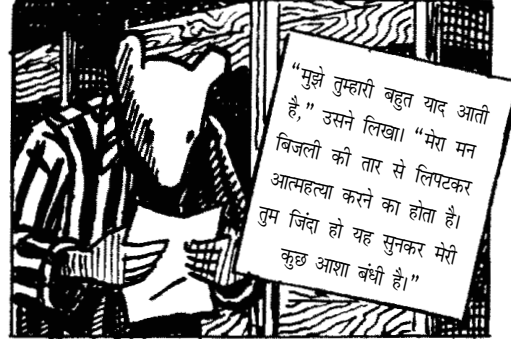 “मुझे तुम्हारी बहुत याद आती
है,” उसने लिखा। “मेरा मन
बिजली की तार से लिपटकर
आत्महत्या करने का होता है।
तुम जिंदा हो यह सुनकर मेरी
कुछ आशा बंधी है।”